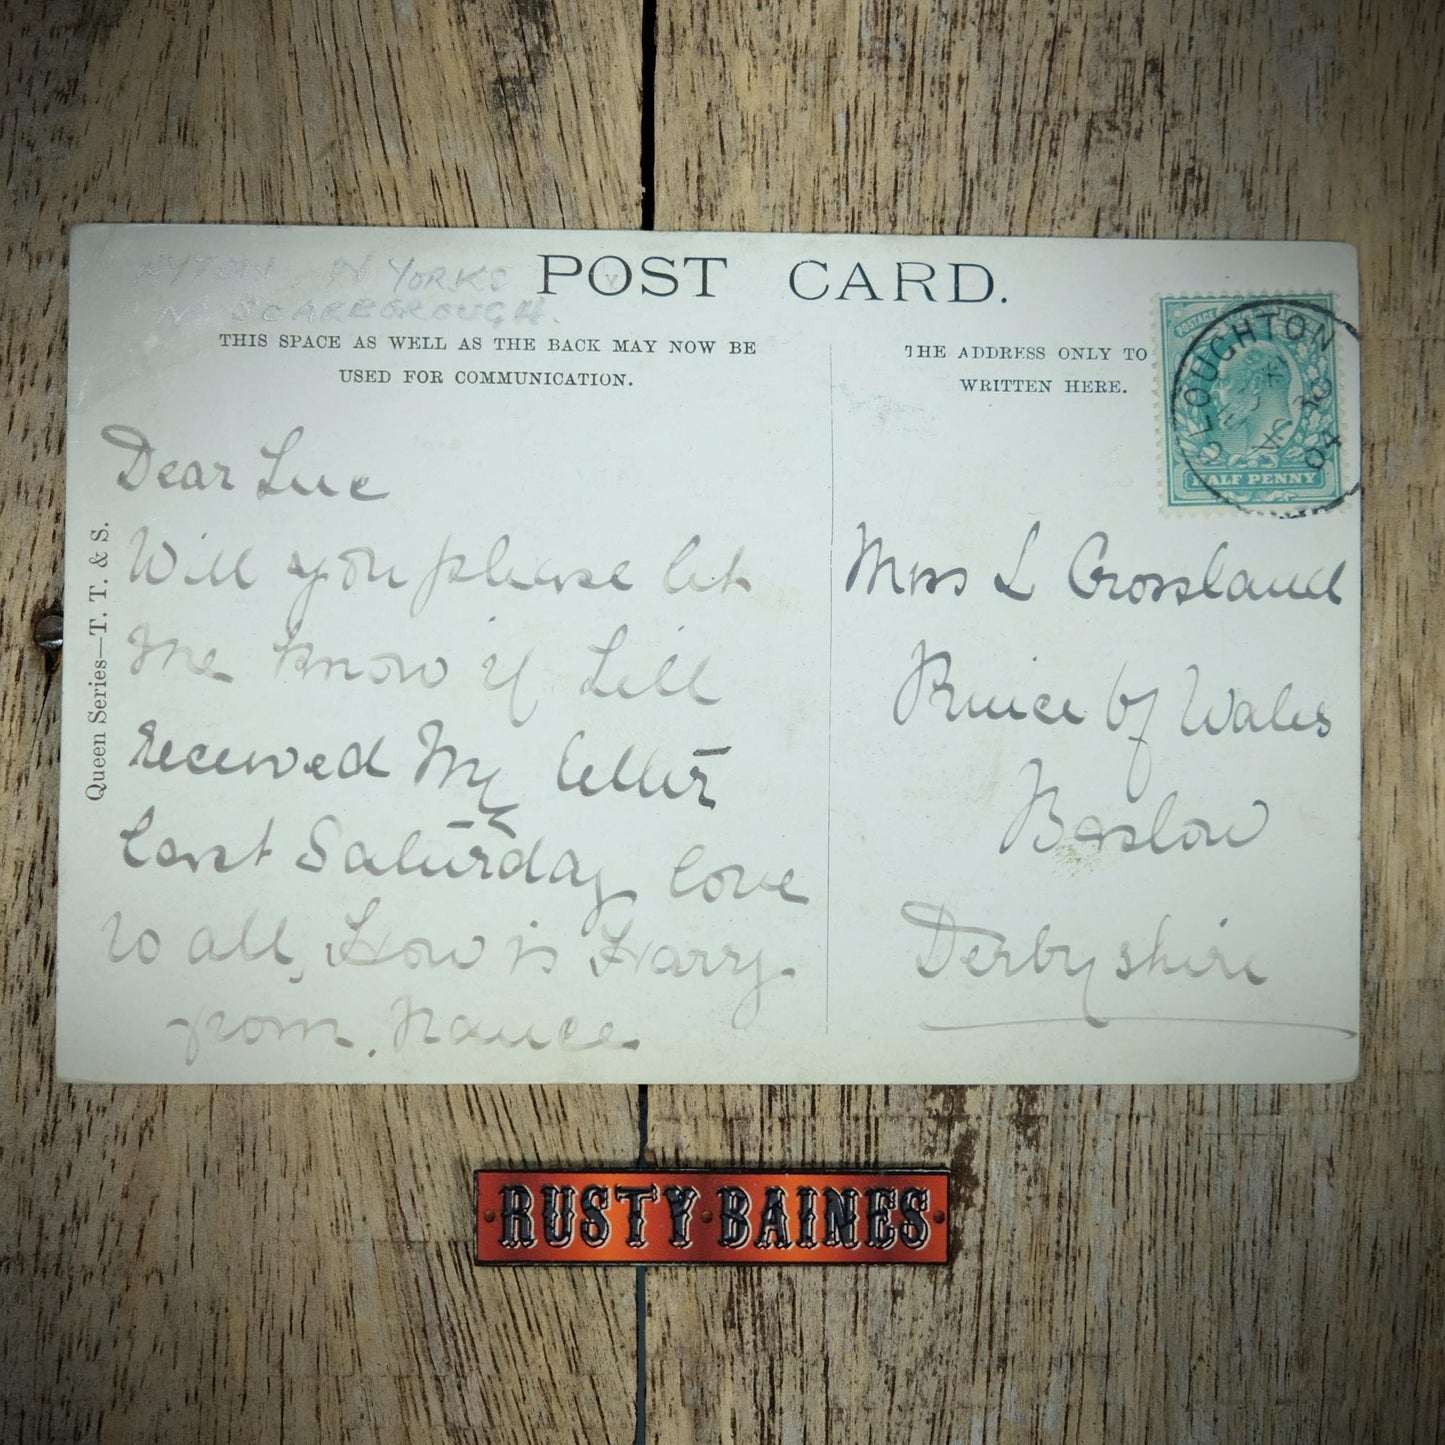 N YORKS
Nr SCARBOROUGH.
POST CARD.
THIS SPACE AS WELL AS THE BACK MAY NOW BE
USED FOR COMMUNICATION.
THE ADDRESS ONLY TO
WRITTEN HERE.
POSTAGE
HALF PENNY
CLOUGHTON
AU 30
04
Queen Series—T. T. & S.
Dear Luc
Will you please let
me know if Lill
received my letter
last Saturday love
to all, How is Harry
from. Nance.
Miss L Crossland
Prince of Wales
Baslow
Derbyshire
RUSTY BAINES